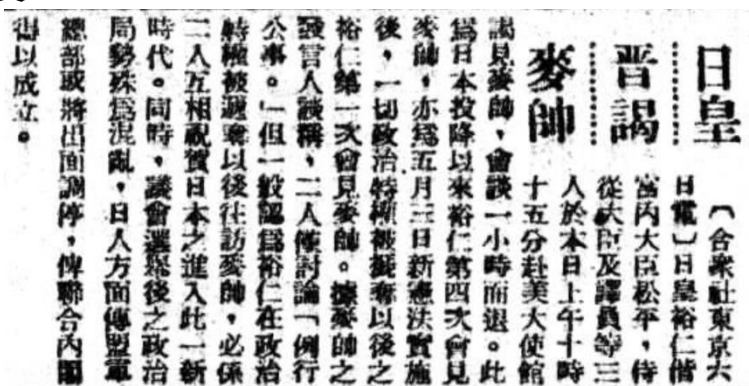 日皇
晋謁
麥帥
〔合衆社東京六
日電〕日皇裕仁偕
宮內大臣松平，侍
從大臣及譯員等三
人於本日上午十時
十五分赴美大使館
謁見麥帥，會談一小時而退。此
爲日本投降以來裕仁第四次會見
麥帥，亦爲五月三日新憲法實施
後，一切政治特權被褫奪以後之
裕仁第一次會見麥帥。據麥帥之
發言人談稱，二人僅討論「例行
公事。」但一般認爲裕仁在政治
特權被褫奪以後往訪麥帥，必係
二人互相祝賀日本之進入此一新
時代。同時，議會選舉後之政治
局勢殊爲混亂，日人方面傳盟軍
總部或將出面調停，俾聯合內閣
得以成立。